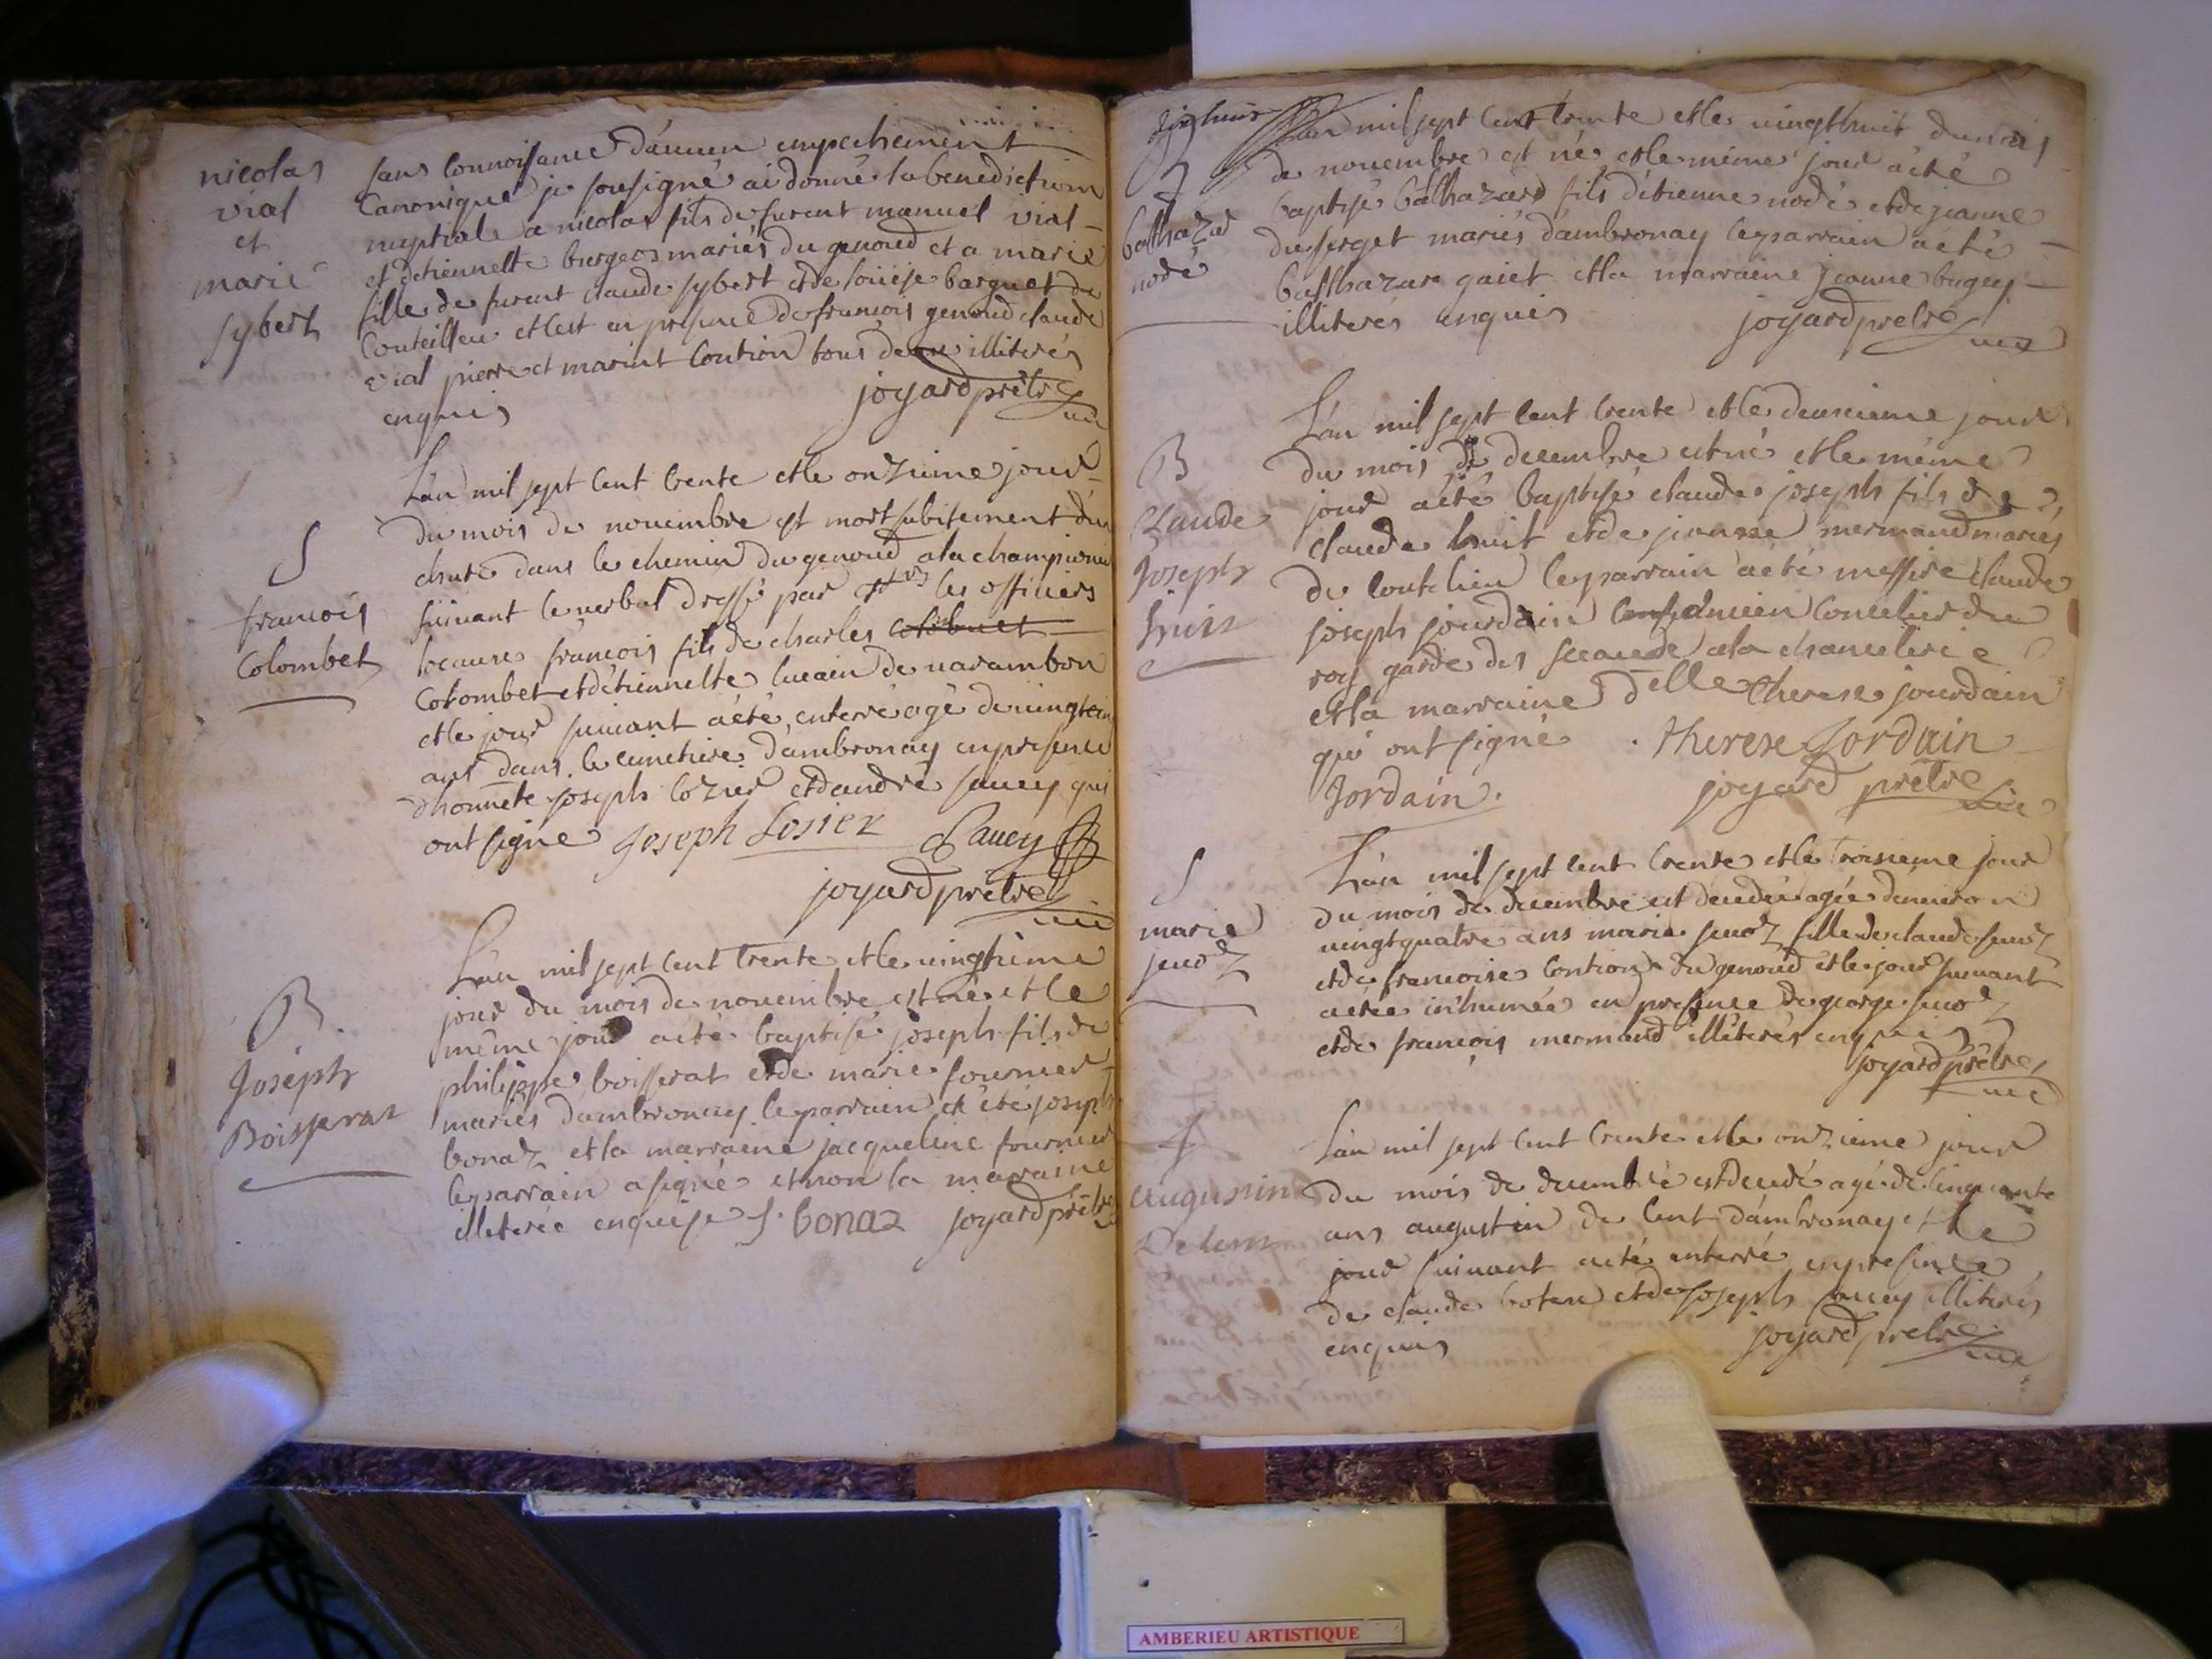 nicolas
vial
et
marie
sybert
sans connoissance d'aucun empechement
canonique je sousigné ai donné la benediction
nuptiale a nicolas fils de furent manuel vial
et d'etiennette burgeos mariés du genoud et a marie
fille de furent claude sybert et de loüise barquet du
et c'est en presence de francois genoud claude
vial pierre et marint Contion tous illiterés
enquis joyard prêtre
S
francois
Colombet
L'an mil sept cent trente et le onzieme jour
du mois de novembre est mort subitement d'un
chute dans le chemin du genoud a la championn
suivant le verbal dressé par les officiers
locaures francois fils de charles
Colombet et d'étiennette lucain de varambon
et le jour suivant a été enterré agé de vingt cin
ans dans le cimetiere d'ambronay en presence
d'honnete joseph lozier et d'andré saucy qui
ont signe Joseph Losier Saucy
joyard prêtre
B.
Joseph
Boisserat
L'an mil sept cent trente et le vingtieme
jour du mois de novembre est né et le
même jour a été baptisé joseph fils de
philippe boisserat et de marie fournier
mariés d'ambronay le parrain a été joseph
bonaz et la marraine jacqueline fournier
le parrain a signé et non la marraine
illiterée enquise J. bonaz joyard prêtre
B
balthazar
nodé
L'an mil sept cent trente et le vingt huit du mois
de novembre est né et le même jour a été
baptisé balthazard fils d'étienne nodé et de jeanne
duferget mariés d'ambronay le parrain a été
balthazare gaiet et la marraine jeanne bugey
illiterés enquis joyard prêtre
B
Claude
Joseph
huit
L'an mil sept cent trente et le deuxieme jour
du mois de decembre est né et le même
jour a été baptisé claude joseph fils de
claude huit et de jeanne mermand mariés
de le parrain a été messire claude
joseph jourdain ancien conseiller du
roy garde des sceaude a la chancelerie
et la marraine delle therese jourdain
qui ont signé Therese Jordain
Jordain. joyard prêtre
S
marie
L'an mil sept cent trente et le troisieme jour
du mois de decembre est decedée agée d'environ
vingt quatre ans marie fille de claude
et de francoise Contion du genoud et le jour suivant
a étée inhumée en presence de george
et de francois mermand illiterés enquis
joyard prêtre
S
augustin
Delent
L'an mil sept cent trente et le onzieme jour
du mois de decembre est decedé agé de cinquante
ans augustin de lent d'ambronay et le
jour suivant a été enterré en presence
de claude et de joseph saucy illiterés
enquis joyard prêtre
AMBERIEU ARTISTIQUE